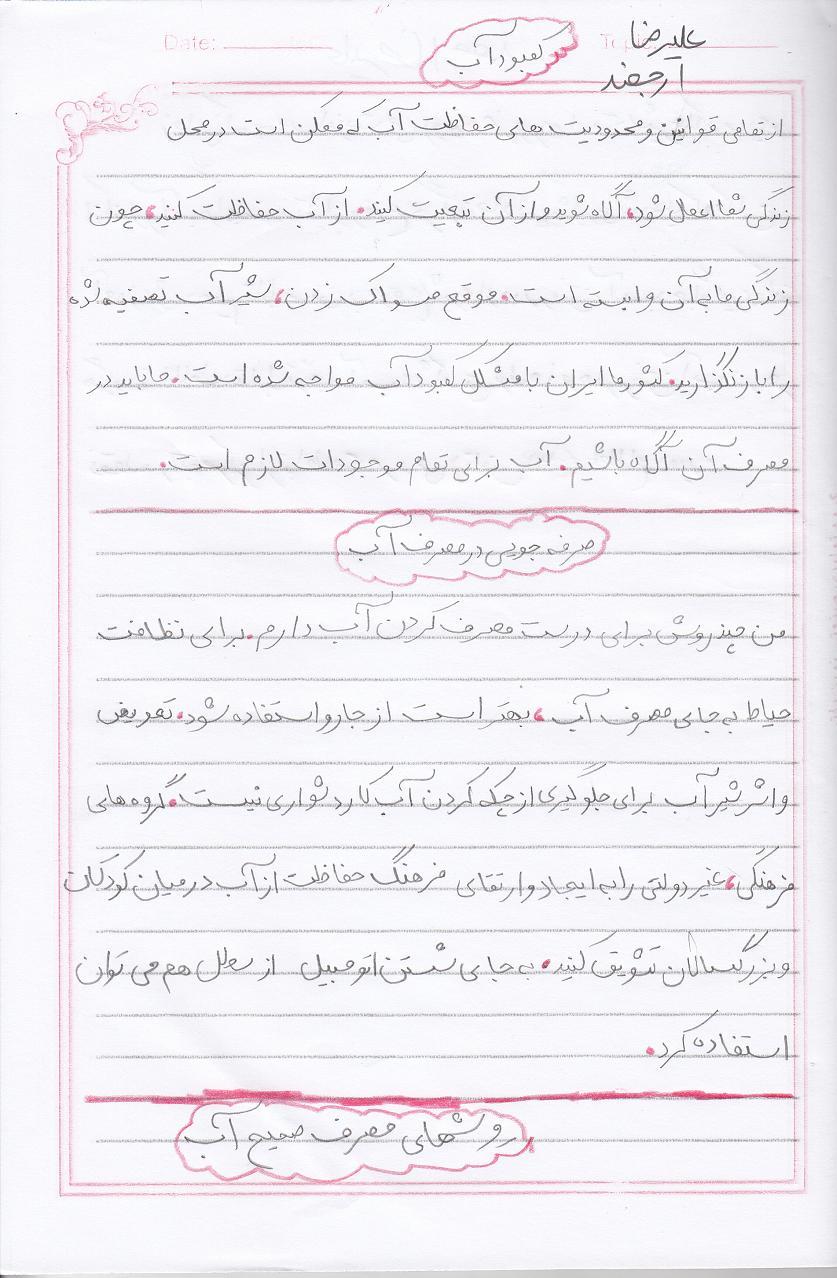 Date:
Topic:
علیرضا
ارجمند
کمبود آب
از تمامی قوانین و محدودیت های حفاظت آب که ممکن است در محل
زندگی شما اعمال شود، آگاه شوید و از آن تبعیت کنید. از آب حفاظت کنید، چون
زندگی ما به آن وابسته است. موقع مسواک زدن، شیر آب تصفیه شده
را باز نگذارید. کشور ما ایران با مشکل کمبود آب مواجه شده است. ما باید در
مصرف آن آگاه باشیم. آب برای تمام موجودات لازم است.
صرفه جویی در مصرف آب
من چند روش برای درست مصرف کردن آب دارم. برای نظافت
حیاط به جای مصرف آب، بهتر است از جارو استفاده شود. تعویض
واشر شیر آب برای جلوگیری از چکه کردن آب کار دشواری نیست. گروه های
فرهنگی، غیر دولتی را به ایجاد و ارتقای فرهنگ حفاظت از آب در میان کودکان
و بزرگسالان تشویق کنید. به جای شستن اتومبیل از سطل هم می توان
استفاده کرد.
روشهای مصرف صحیح آب